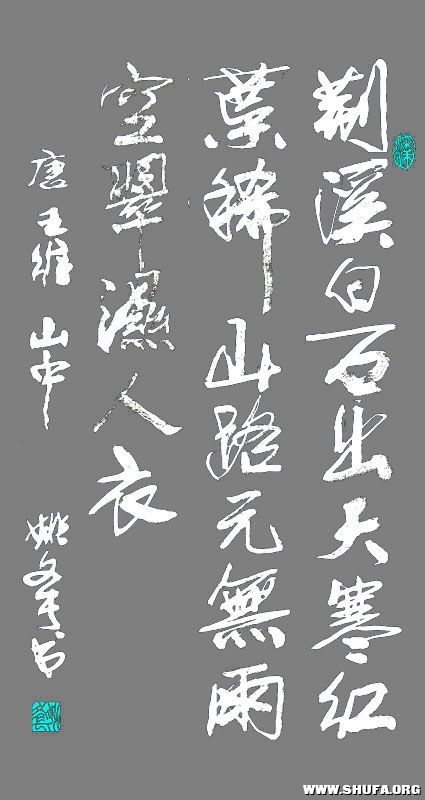 荆溪白石出天寒红
葉稀山路元無雨
空翠濕人衣
唐王維山中
姚書
WWW.SHUFA.ORG